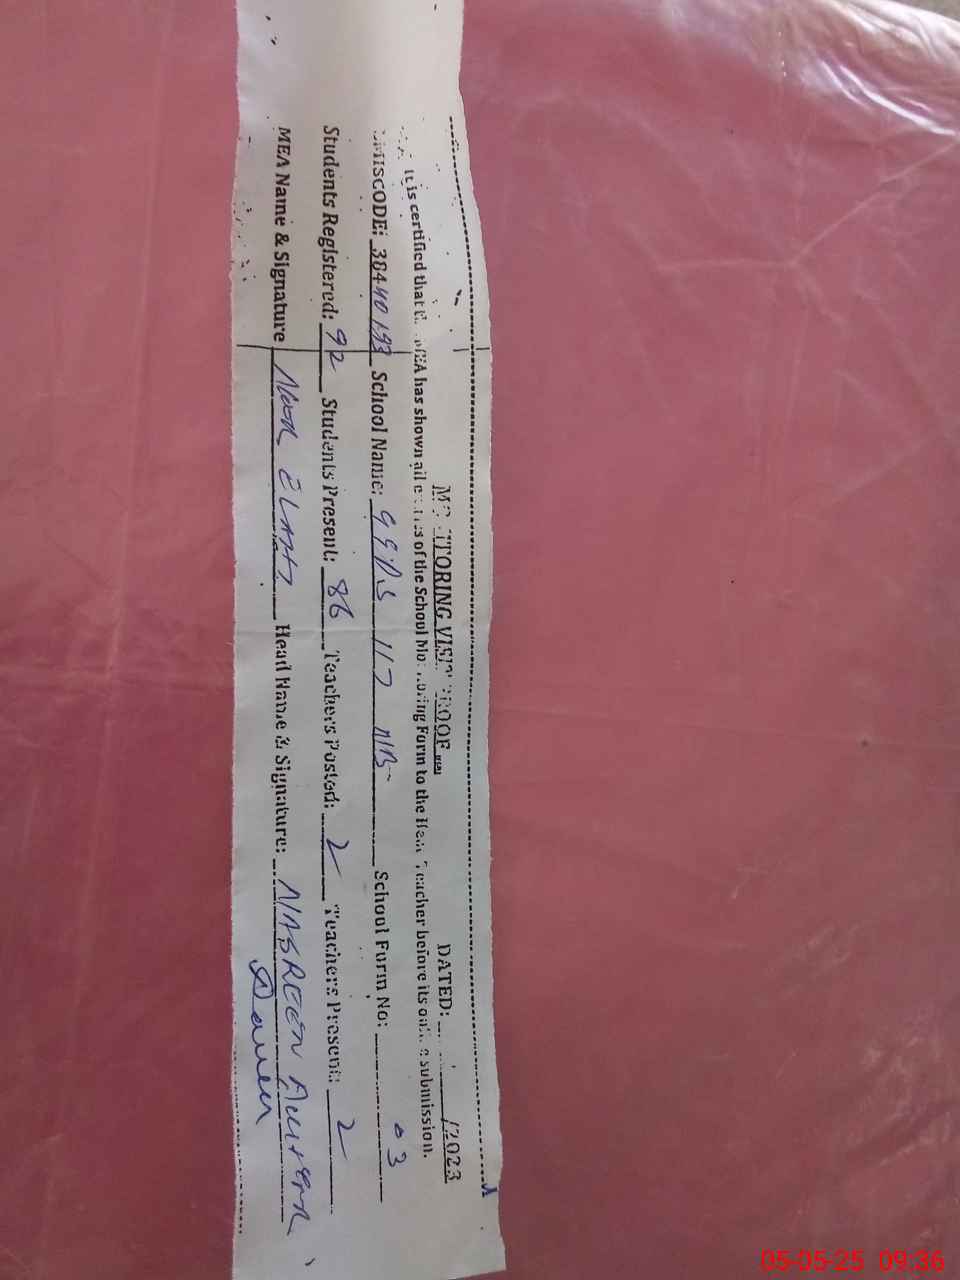 MONITORING VISIT PROOF DATED: /2023
It is certified that the MEA has shown all entries of the School Monitoring Form to the Head Teacher before its online submission.
EMISCODE: 38440193 School Name: GGPS 117 NB School Form No: 03
Students Registered: 92 Students Present: 86 Teachers Posted: 2 Teachers Present: 2
MEA Name & Signature Noor ELAHI Head Name & Signature: NASREEN AKHTER
05-05-25 09:36